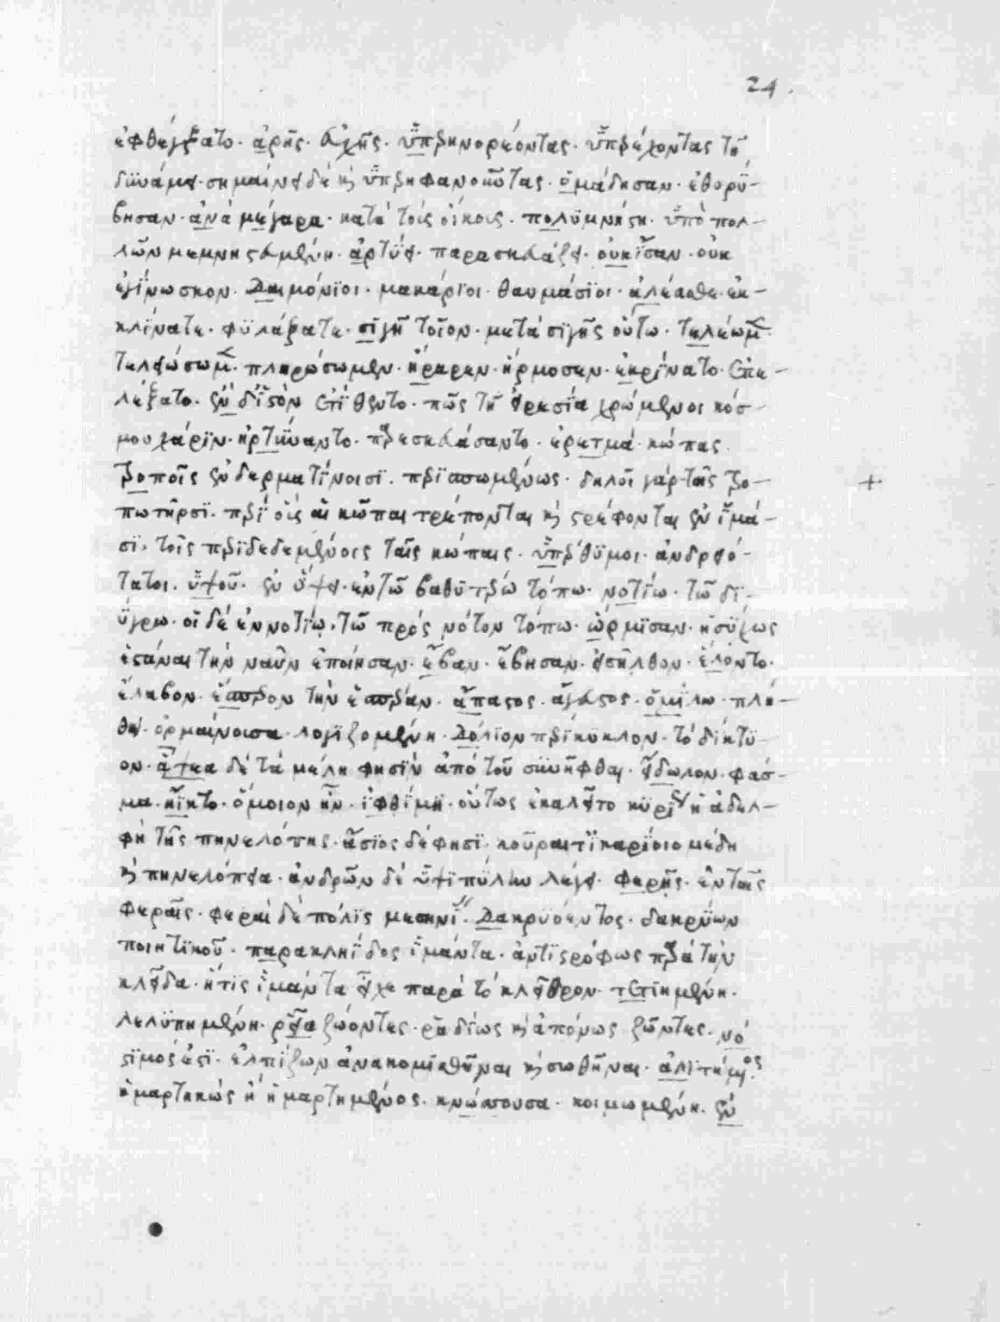 24.
ἐφθέγξατο· ἀρῆς· εὐχῆς· ὑπερηνορέοντας· ὑπερέχοντας τῆ
δυνάμει· σημαίνει δὲ καὶ ὑπερηφανοῦντας· ὁμάδησαν· ἐθορύ-
βησαν· ἀνὰ μέγαρα· κατὰ τοὺς οἴκους· πολυμνήστη· ὑπὸ πολ-
λῶν μεμνηστευμένη· ἀρτύει· παρασκευάζει· οὐκ ἴσαν· οὐκ
ἐγίνωσκον· Δαιμόνιοι· μακάριοι· θαυμάσιοι· ἀλέασθε· ἐκ-
κλίνατε· φυλάξατε· σιγῇ τοῖον· μετὰ σιγῆς οὕτω· τελέωμεν·
τελειώσωμεν· πληρώσωμεν· ἤραρεν· ἥρμοσεν· ἐκρίνατο· ἐπε-
λέξατο· ἐν δ' ἱστὸν ἐτίθεντο· πῶς τῇ εἰρεσίᾳ χρώμενοι κόσ-
μου χάριν· ἠρτύναντο· παρεσκευάσαντο· ἐρετμὰ· κώπας
τροποῖς ἐν δερματίνοισι· περισσωμένως· δηλοῖ γὰρ ταῖς τρο-
πωτῆρσι· περὶ οἷς αἱ κῶπαι τρέπονται καὶ στρέφονται ἐν ἱμᾶ-
σι· τοῖς περιδεδεμένοις ταῖς κώπαις· ὑπέρθυμοι· ἀνδρειό-
τατοι· ὑψοῦ· ἐν ὕψει· ἐν τῶ βαθυτέρω τόπω· νοτίω· τῶ δι-
ύγρω· οἱ δὲ ἐν νοτίω, τῶ πρὸς νότον τόπω· ὥρμισαν· ἡσύχως
ἑστάναι τὴν ναῦν ἐποίησαν· ἔβαν· ἔβησαν· εἰσῆλθον· ἕλοντο·
ἔλαβον· ἄπαστος· ἄγευστος· ὁμίλω· πλή-
θει· ὁρμαίνουσα· λογιζομένη· Δόλιον περὶ κύκλον· τὸ δίκτυ-
ον· ἅψεα δὲ τὰ μέλη φησὶν ἀπὸ τοῦ συνῆφθαι· εἴδωλον· φάσ-
μα· ἤϊκτο· ὅμοιον ἦν· ἰφθίμη· οὕτως ἐκαλεῖτο κυρίως ἡ ἀδελ-
φὴ τῆς πηνελόπης· ἄσιος δὲ φησὶ· κοῦραι τ' ἰκαρίοιο μέδη
καὶ πηνελόπεια· ἀνδρῶν δὲ ὑψιπύλην λέγει· Φερῆς· ἐν ταῖς
φεραῖς· φεραὶ δὲ πόλις Δακρυόεντος· δακρύων
ποιητικοῦ· παρὰ κληῗδος ἱμάντα· ἀντιστρόφως παρὰ τὴν
κλεῖδα· ἥτις ἱμάντα εἶχε παρὰ τὸ κλεῖθρον· τετιημένη·
λελυπημένη· ῥεῖα ζώοντες· ῥαδίως καὶ ἀπόνως ζῶντες· νό
στιμός ἐστι· ἐλπίζων ἀνακομισθῆναι καὶ σωθῆναι· ἀλιτήμενος
ἡμαρτηκὼς ἢ ἡμαρτημένος· κνώσσουσα· κοιμωμένη· ἐν